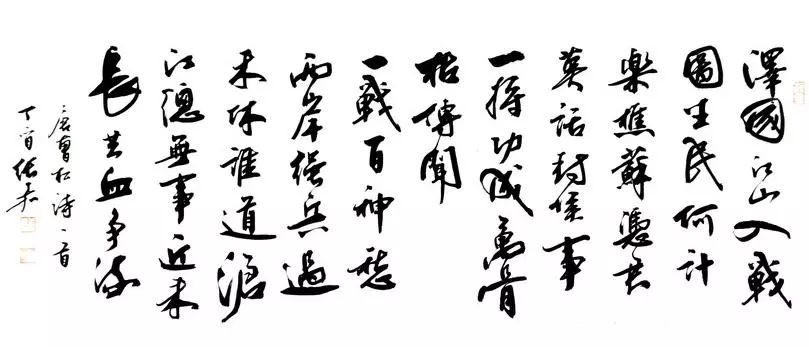 澤國江山入戰
圖生民何計
樂樵蘇憑君
莫話封侯事
一將功成萬骨
枯傳聞
一戰百神愁
兩岸強兵過
未休誰道滄
江總無事近來
長共血爭流
唐曹松詩首
丁酉